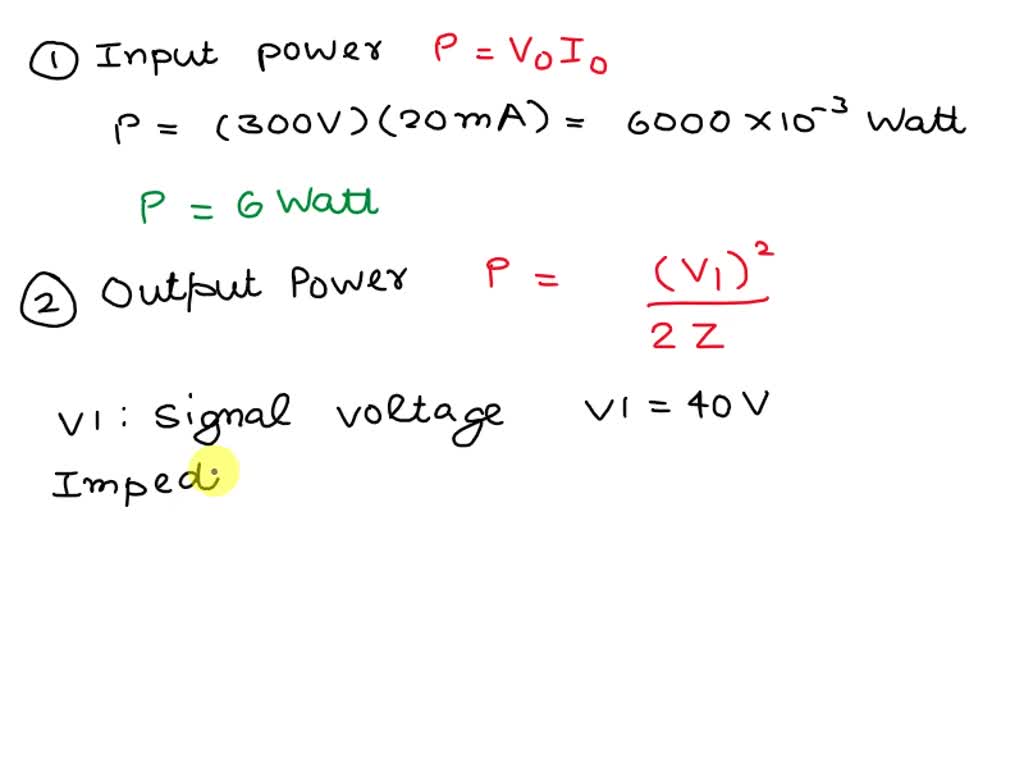 ① Input power P = V₀I₀
P = (300V)(20mA) = 6000 × 10⁻³ Watt
P = 6 Watt
② Output Power P = (V₁)² / 2Z
V1 : Signal voltage V1 = 40 V
Imped